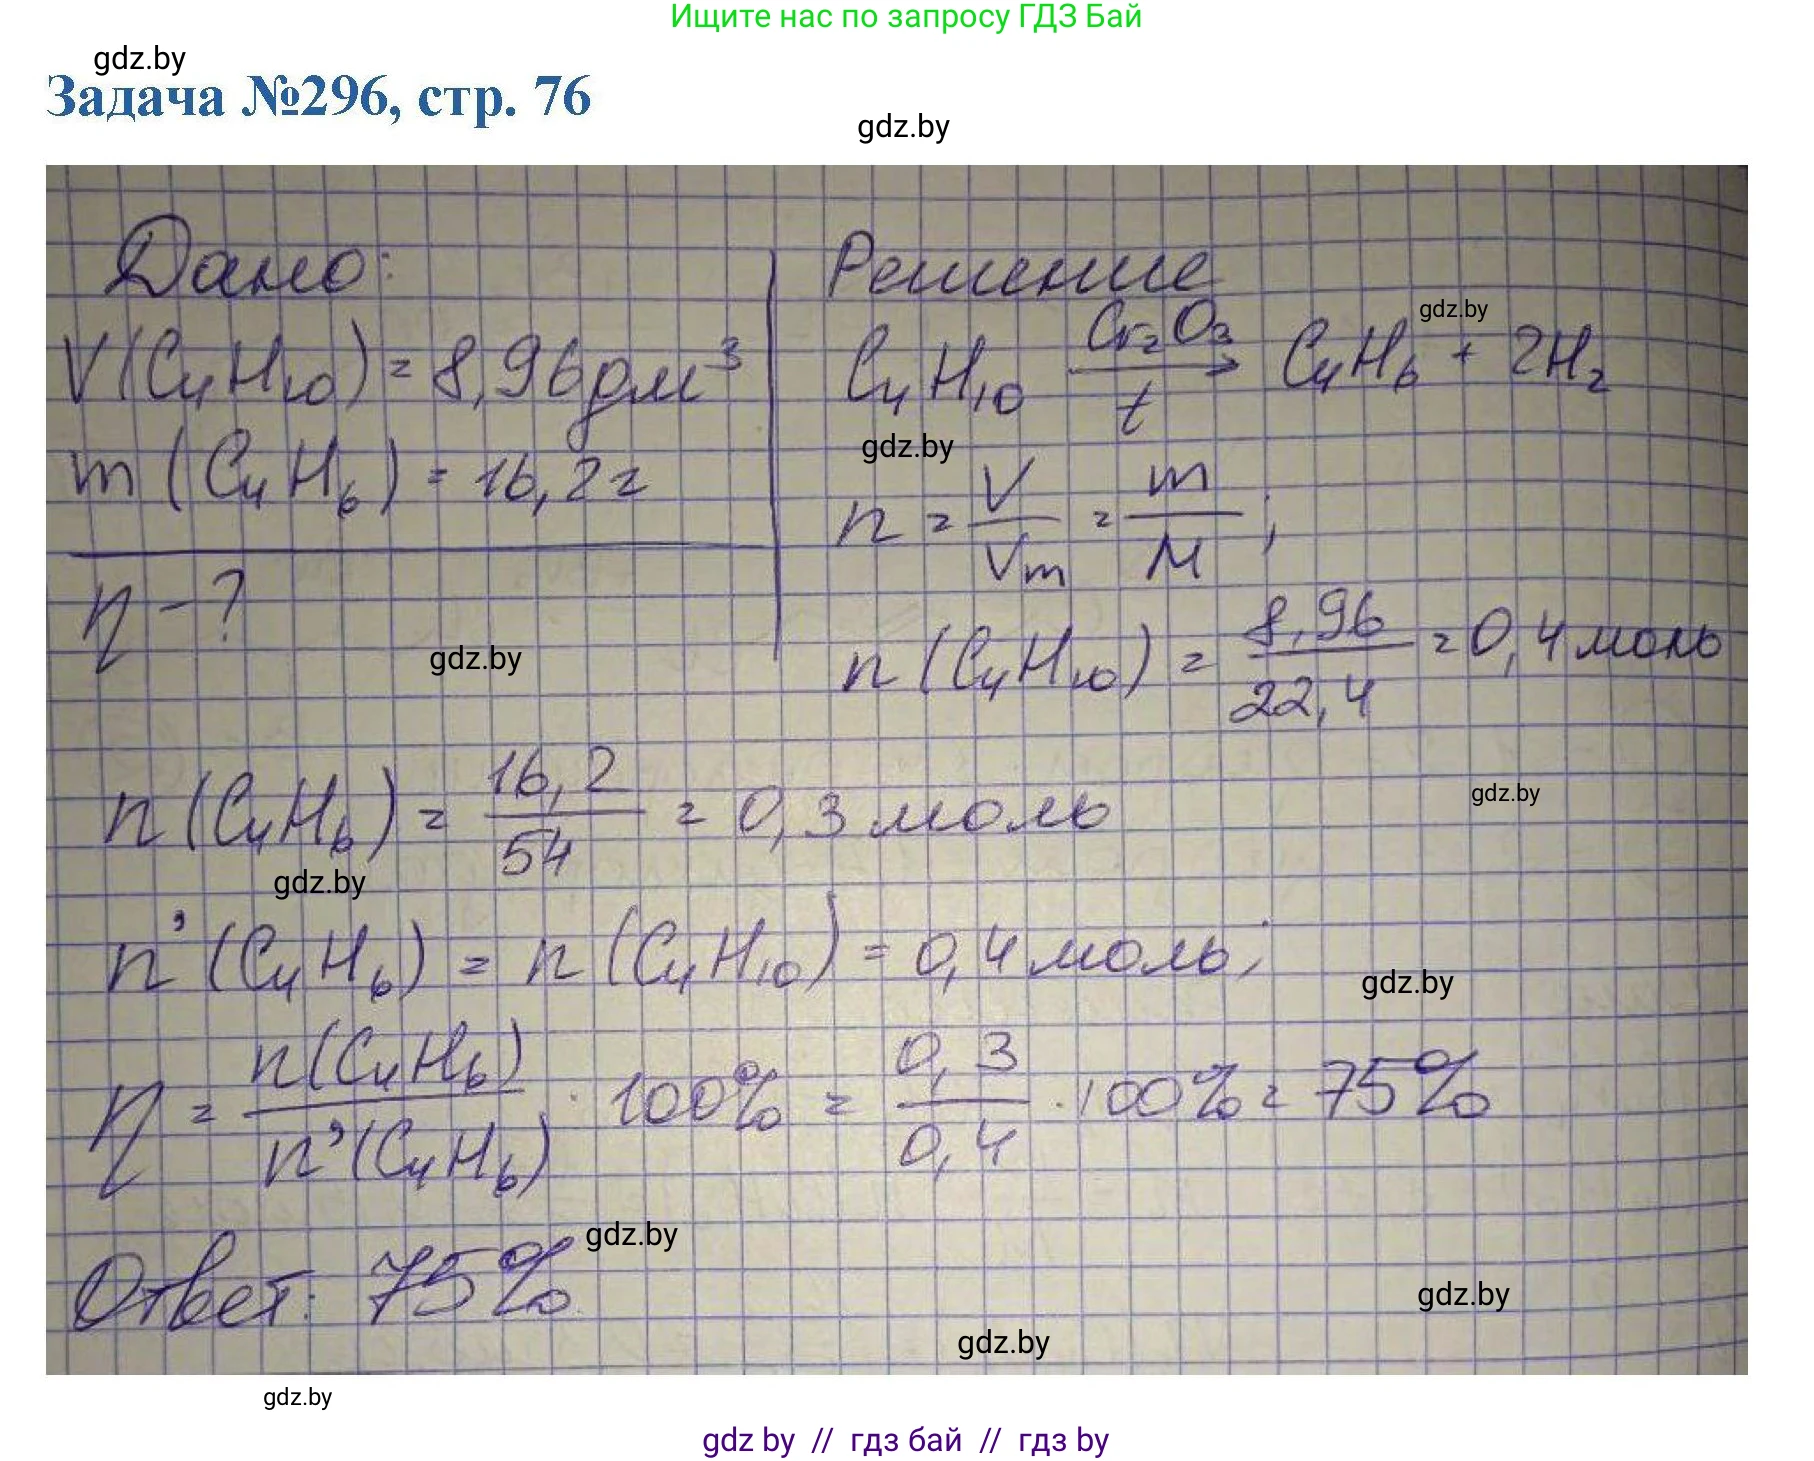 Ищите нас по запросу ГДЗ Бай
gdz.by
Задача №296, стр. 76
gdz.by
Дано:
V(C₄H₁₀) = 8,96 дм³
m(C₄H₆) = 16,2 г
η - ?
gdz.by
Решение
gdz.by
C₄H₁₀ →(Cr₂O₃, t) C₄H₆ + 2H₂
gdz.by
n = V/Vm = m/M ;
n(C₄H₁₀) = 8,96/22,4 = 0,4 моль
n(C₄H₆) = 16,2/54 = 0,3 моль
gdz.by
gdz.by
n'(C₄H₆) = n(C₄H₁₀) = 0,4 моль;
gdz.by
η = n(C₄H₆)/n'(C₄H₆) · 100% = 0,3/0,4 · 100% = 75%
gdz.by
Ответ: 75%
gdz.by
gdz.by
gdz.by
gdz by // гдз бай // гдз by